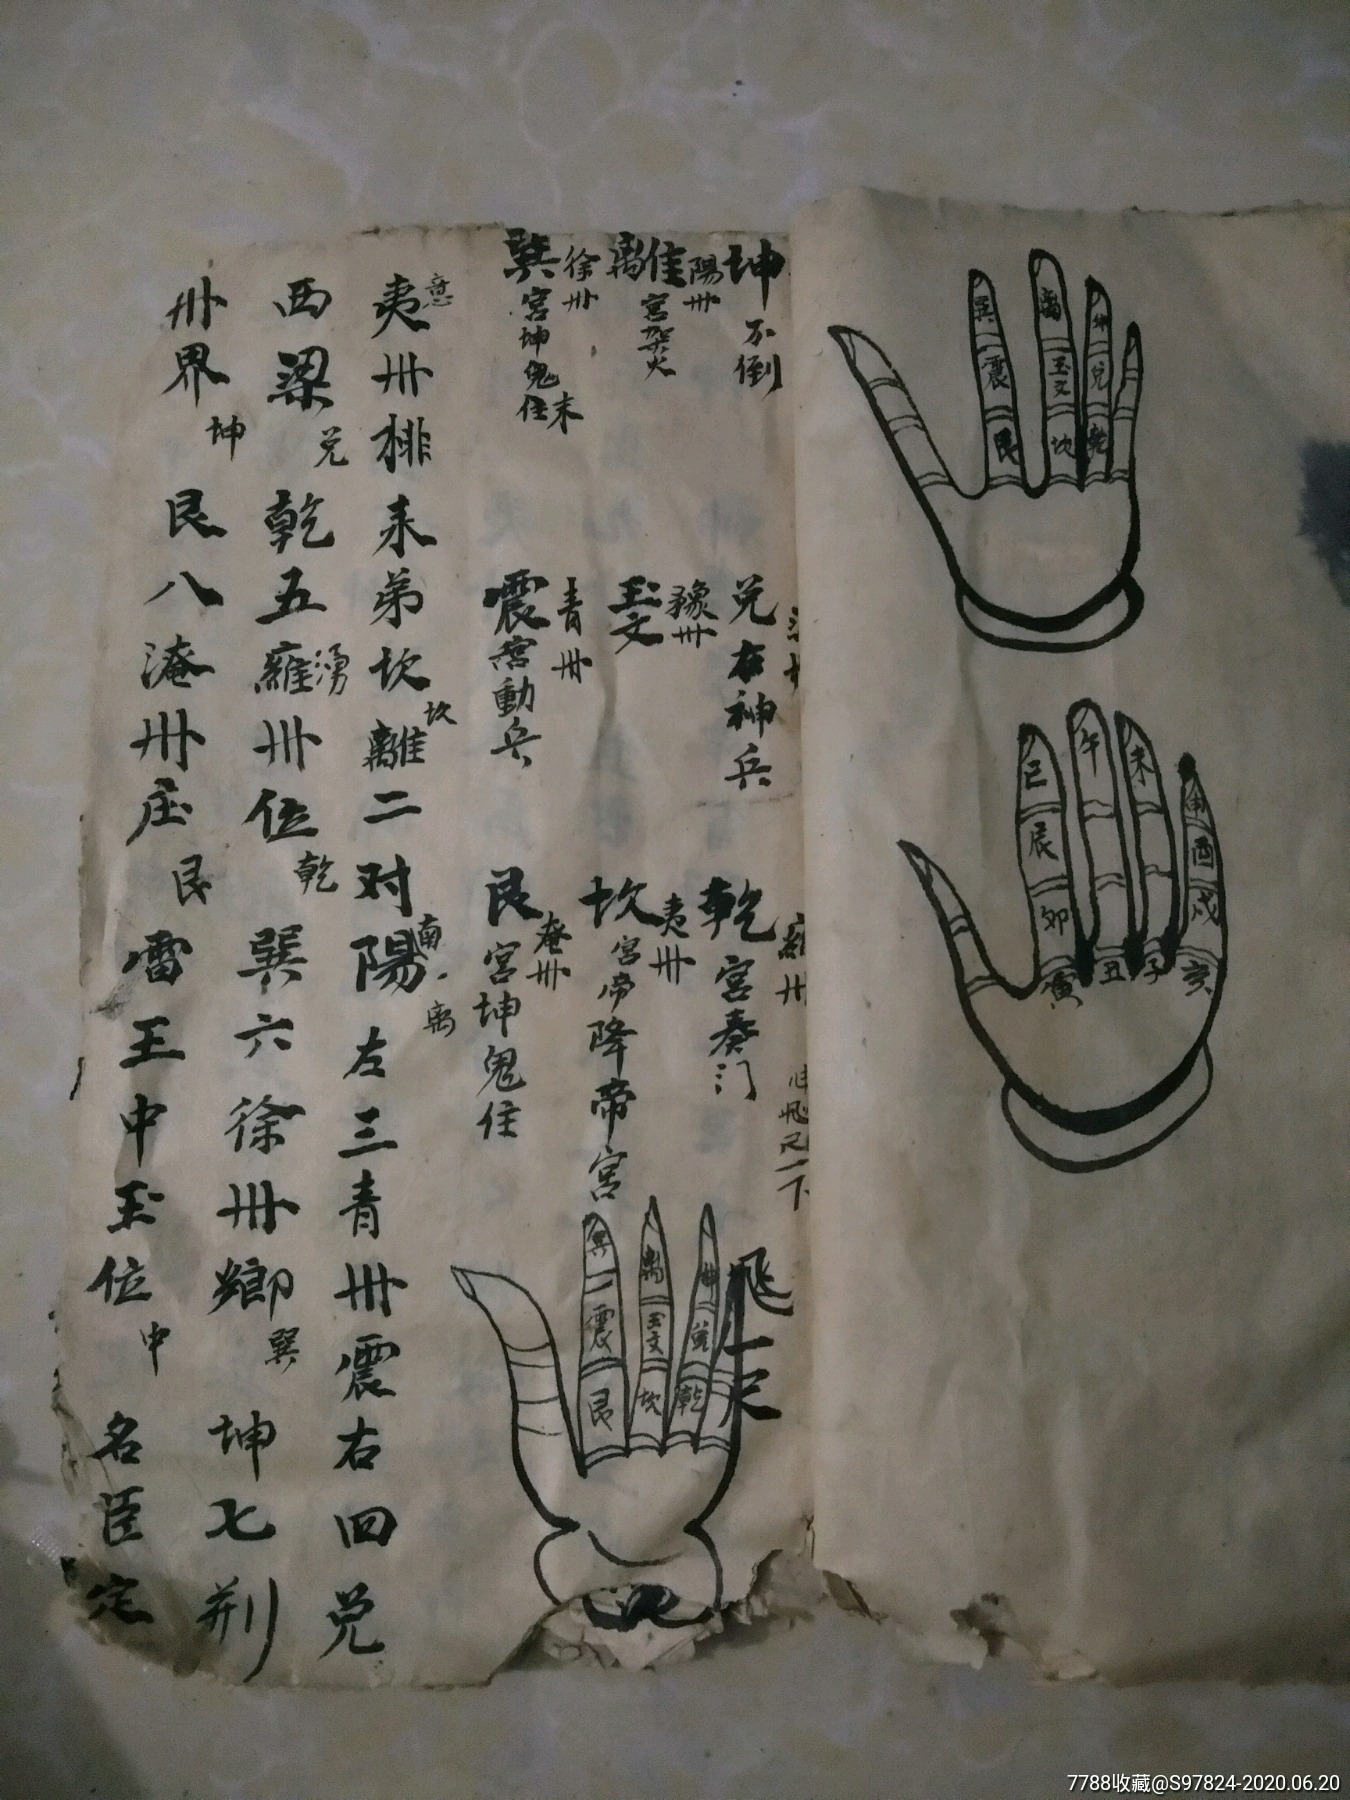 巽
離
坤
震
玉文
兑
艮
坎
乾
巳
午
未
申
辰
酉
卯
戌
寅
丑
子
亥
坤不倒
陽卅
離宮架火
徐卅
巽宮坤鬼住未
兑右神兵
豫卅
玉文
青卅
震宮動兵
雍卅
乾宮奏门
夷卅
坎宮帝降帝宮
淹卅
艮宮坤鬼住
飛一尺
巽
離
坤
震
玉文
兑
艮
坎
乾
夷卅排来弟坎坎離二对陽南离左三青卅震右四兑
西梁兑乾五雍湧卅位乾巽六徐卅鄉巽坤七荆
卅界坤艮八淹卅庄艮雷王中玉位中名臣定
7788收藏@S97824-2020.06.20